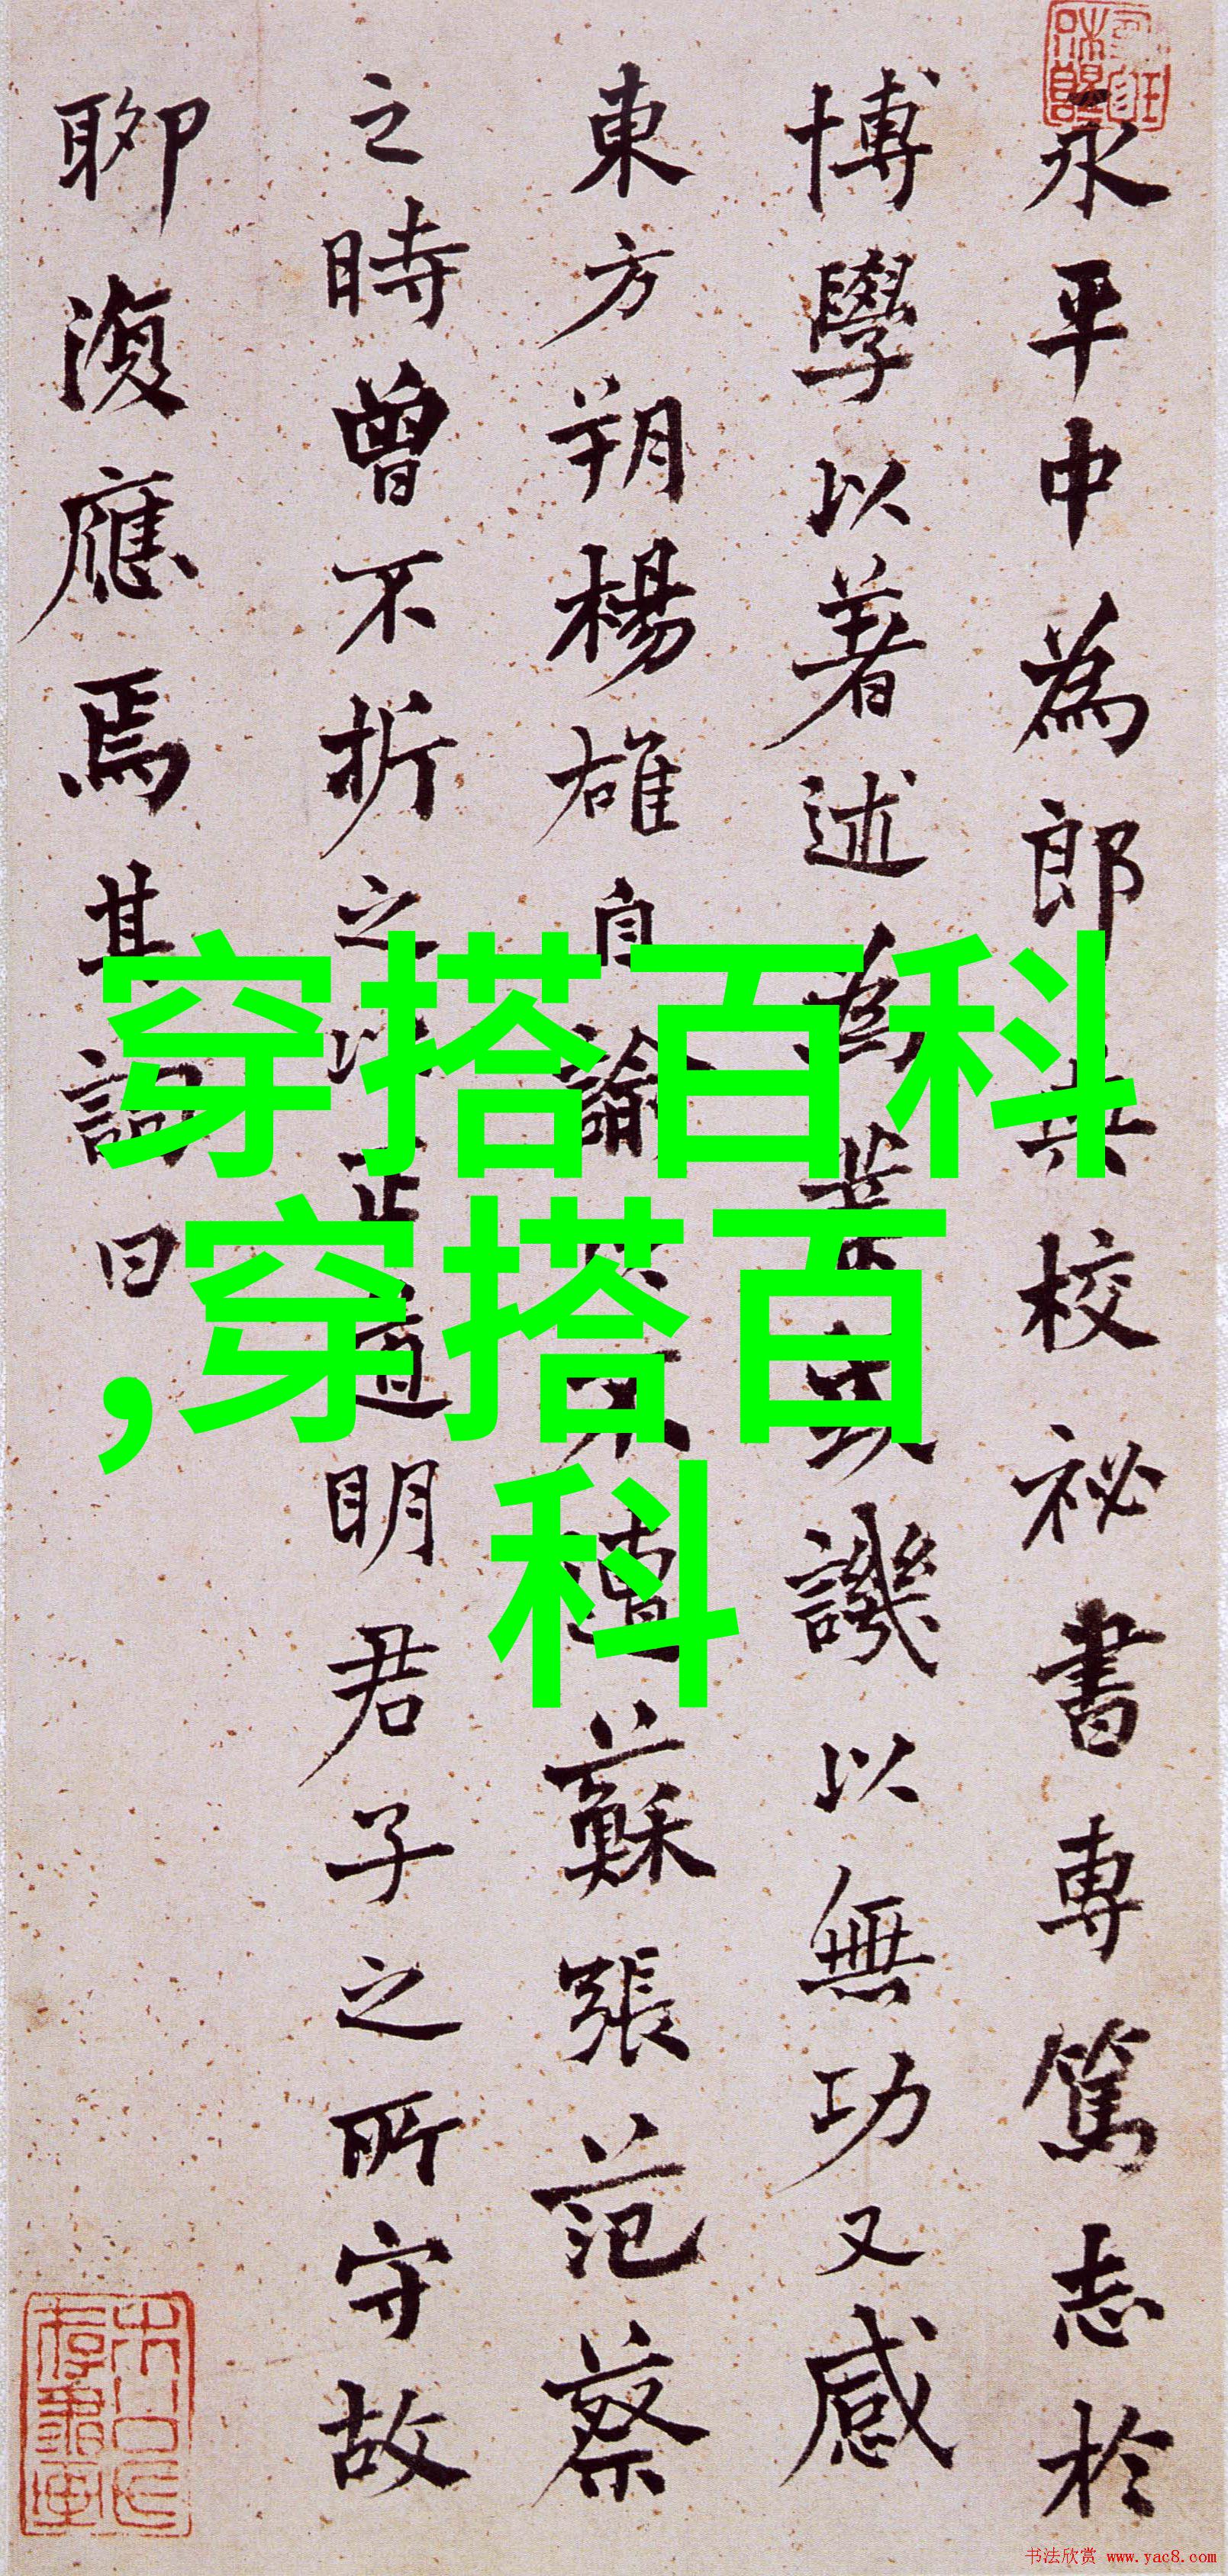 永平中為郎典校祕書專篤志於
博學以著述為業或譏以無功又感
東方朔楊雄自諭以不遭蘇張范蔡
之時曾不折之以正道明君子之所守故
聊復應焉其詞曰
穿搭百科
,穿搭百
科
书法欣赏 www.yac8.com